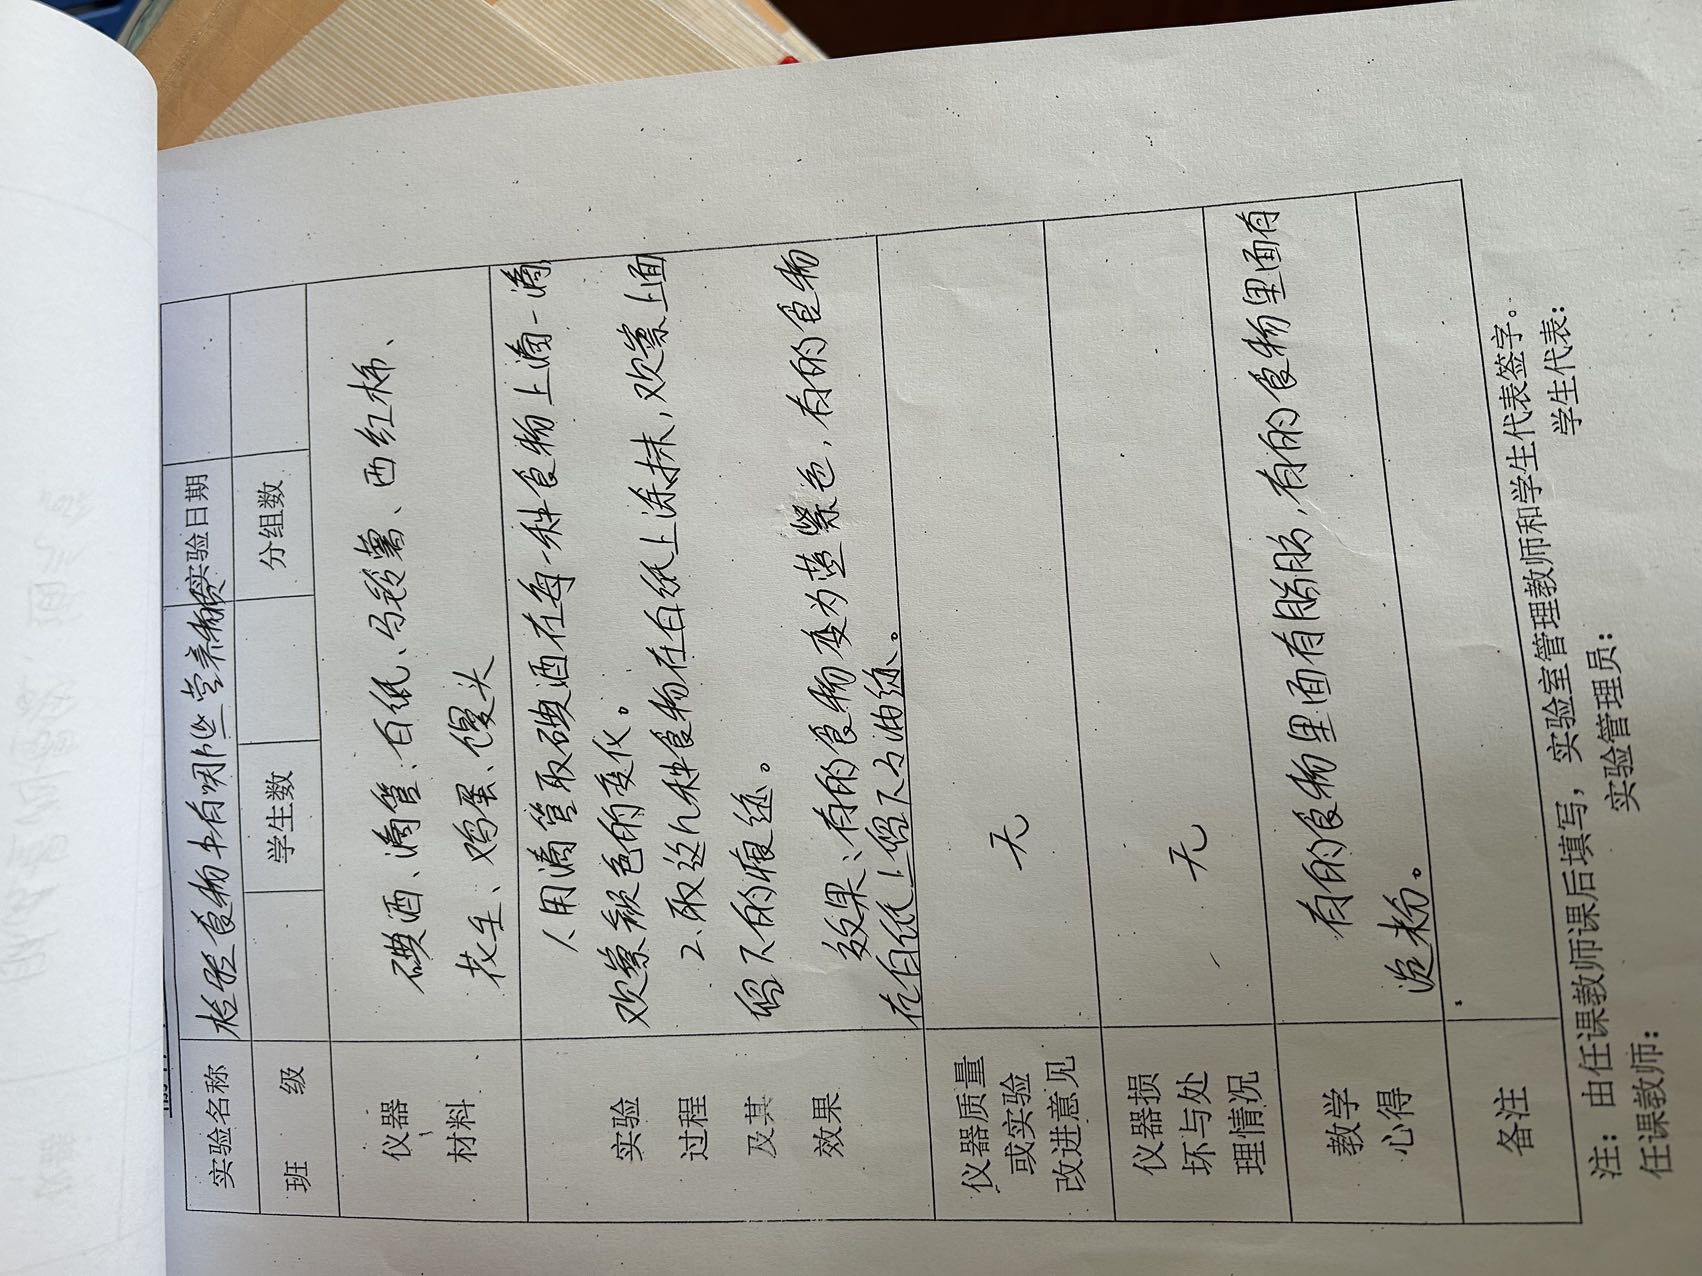 实验名称 检验食物中有哪些营养物质 实验日期
班 级 学生数 分组数
仪器
材料
碘酒、滴管、白纸、马铃薯、西红柿、
花生、鸡蛋、馒头
实验
过程
及其
效果
1.用滴管取碘酒在每一种食物上滴一滴,
观察颜色的变化。
2.取这几种食物在白纸上涂抹,观察上面
留下的痕迹。
效果:有的食物变为蓝紫色,有的食物
在白纸上留下了油迹。
仪器质量
或实验
改进意见
无
仪器损
坏与处
理情况
无
教学
心得
有的食物里面有脂肪,有的食物里面有
淀粉。
备注
注:由任课教师课后填写,实验室管理教师和学生代表签字。
任课教师: 实验管理员: 学生代表: